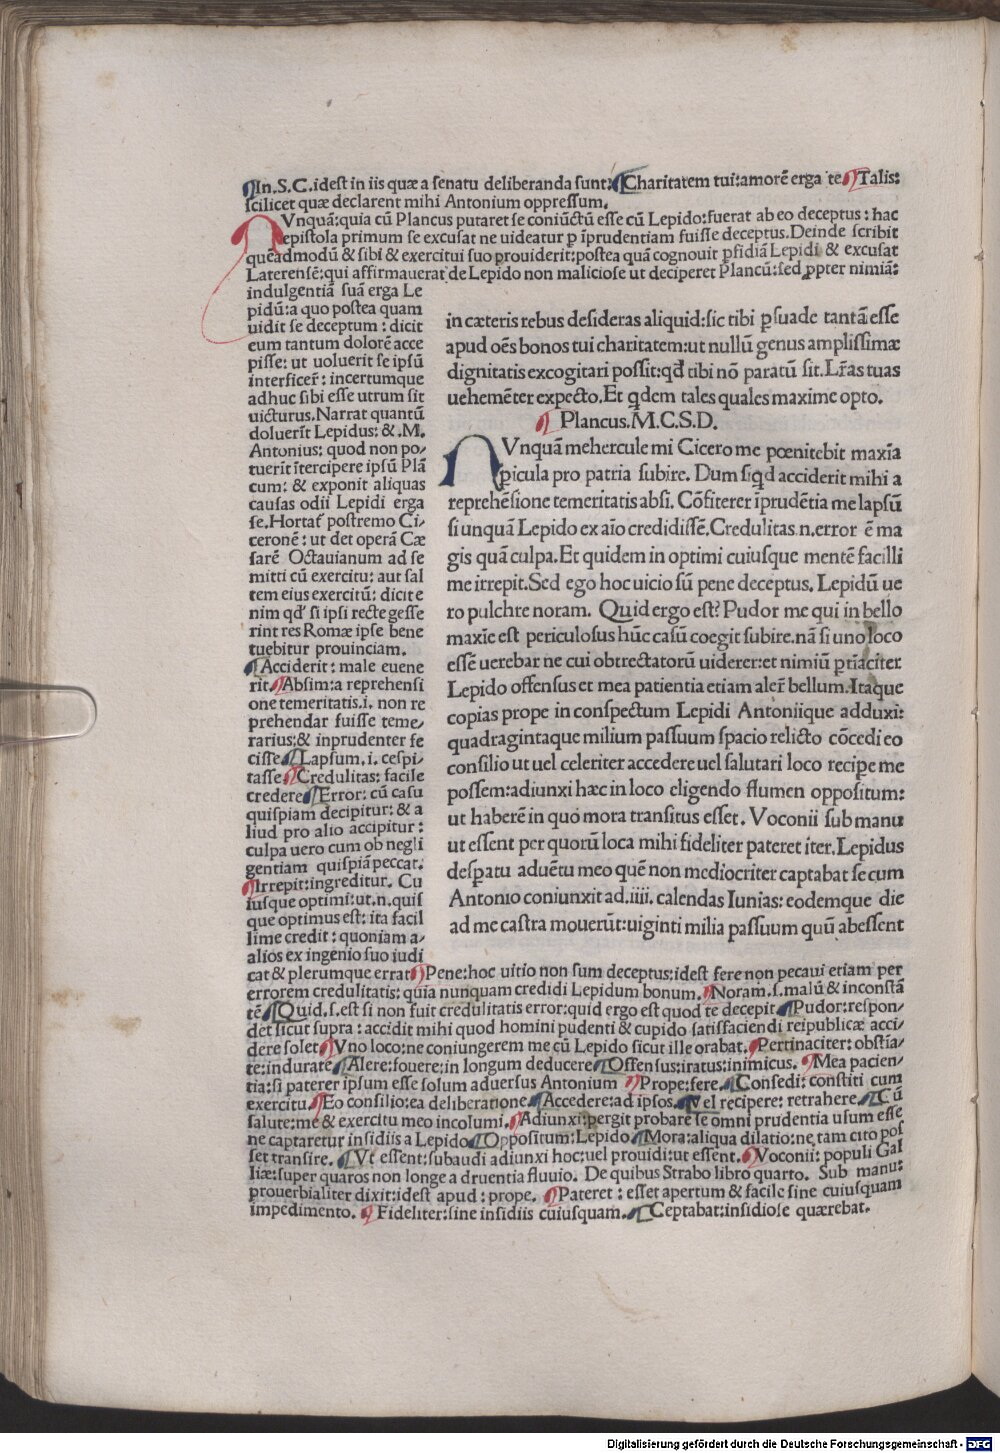 ¶In.S.C.idest in iis quæ a senatu deliberanda sunt:¶Charitatem tui:amorē erga te¶Talis:
scilicet quæ declarent mihi Antonium oppressum.
NVnquā:quia cū Plancus putaret se coniūctū esse cū Lepido:fuerat ab eo deceptus: hac
epistola primum se excusat ne uideatur p īprudentiam fuisse deceptus.Deinde scribit
quēadmodū & sibi & exercitui suo prouiderit:postea quā cognouit pfidiā Lepidi & excusat
Laterensē:qui affirmauerat de Lepido non maliciose ut deciperet Plancū:sed ppter nimiā:
indulgentiā suā erga Le
pidū:a quo postea quam
uidit se deceptum: dicit
eum tantum dolorē acce
pisse: ut uoluerit se ipsū
interficer̄: incertumque
adhuc sibi esse utrum sit
uicturus.Narrat quantū
doluerit Lepidus: &.M.
Antonius: quod non po/
tuerit ītercipere ipsū Plā
cum: & exponit aliquas
causas odii Lepidi erga
se.Hortat̄ postremo Ci/
ceronē: ut det operā Cæ
sarē Octauianum ad se
mitti cū exercitu: aut sal
tem eius exercitū: dicit e
nim qd̄ si ipsi recte gesse
rint res Romæ ipse bene
tuebitur prouinciam.
¶Acciderit: male euene
rit.¶Absim:a reprehensi
one temeritatis.i. non re
prehendar fuisse teme/
rarius:& inprudenter fe
cisse¶Lapsum.i. cespi/
tasse¶Credulitas: facile
credere¶Error: cū casu
quispiam decipitur: & a
liud pro alio accipitur:
culpa uero cum ob negli
gentiam quispiā peccat.
¶Irrepit:ingreditur. Cu
iusque optimi:ut.n.quis
que optimus est: ita facil
lime credit: quoniam a/
alios ex ingenio suo iudi
in cæteris rebus desideras aliquid:sic tibi psuade tantā esse
apud oēs bonos tui charitatem:ut nullū genus amplissimæ
dignitatis excogitari possit:qd̄ tibi nō paratū sit.Lr̄as tuas
uehemēter expecto.Et qdem tales quales maxime opto.
¶Plancus.M.C.S.D.
NVnquā mehercule mi Cicero me pœnitebit maxīa
picula pro patria subire. Dum siqd acciderit mihi a
reprehēsione temeritatis absi. Cōfiterer īprudētia me lapsū
si unquā Lepido ex aīo credidissē.Credulitas.n.error ē ma
gis quā culpa.Et quidem in optimi cuiusque mentē facilli
me irrepit.Sed ego hoc uicio sū pene deceptus. Lepidū ue
ro pulchre noram. Quid ergo est? Pudor me qui in bello
maxīe est periculosus hūc casū coegit subire.nā si uno loco
essē uerebar ne cui obtrectatorū uiderer:et nimiū ptīaciter
Lepido offensus et mea patientia etiam aler̄ bellum.Itaque
copias prope in conspectum Lepidi Antoniique adduxi:
quadragintaque milium passuum spacio relicto cōcedi eo
consilio ut uel celeriter accedere uel salutari loco recipe me
possem:adiunxi hæc in loco eligendo flumen oppositum:
ut haberē in quo mora transitus esset. Voconii sub manu
ut essent per quorū loca mihi fideliter pateret iter.Lepidus
despatu aduētu meo quē non mediocriter captabat se cum
Antonio coniunxit ad.iiii. calendas Iunias: eodemque die
ad me castra mouerūt:uiginti milia passuum quū abessent
cat & plerumque errat¶Pene:hoc uitio non sum deceptus:idest fere non pecaui etiam per
errorem credulitatis: quia nunquam credidi Lepidum bonum.¶Noram.s.malū & inconstā
tē¶Quid.s.est si non fuit credulitatis error:quid ergo est quod te decepit¶Pudor:respon/
det sicut supra: accidit mihi quod homini pudenti & cupido satisfaciendi reipublicæ acci/
dere solet¶Vno loco:ne coniungerem me cū Lepido sicut ille orabat.¶Pertinaciter: obstīa/
te:indurate¶Alere:fouere:in longum deducere¶Offensus:iratus:inimicus. ¶Mea pacien/
tia:si paterer ipsum esse solum aduersus Antonium ¶Prope:fere.¶Consedi: constiti cum
exercitu.¶Eo consilio:ea deliberatione¶Accedere:ad ipsos.¶Vel recipere: retrahere.¶Cū
salute:me & exercitu meo incolumi.¶Adiunxi:pergit probare se omni prudentia usum esse
ne captaretur insidiis a Lepido¶Oppositum:Lepido¶Mora:aliqua dilatio:ne tam cito pos
set transire. ¶Vt essent:subaudi adiunxi hoc:uel prouidi:ut essent.¶Voconii: populi Gal
liæ:super quaros non longe a druentia fluuio. De quibus Strabo libro quarto. Sub manu:
prouerbialiter dixit:idest apud: prope. ¶Pateret: esset apertum & facile sine cuiusquam
impedimento. ¶Fideliter:sine insidiis cuiusquam.¶Ceptabat:insidiose quærebat.
Digitalisierung gefördert durch die Deutsche Forschungsgemeinschaft - DFG